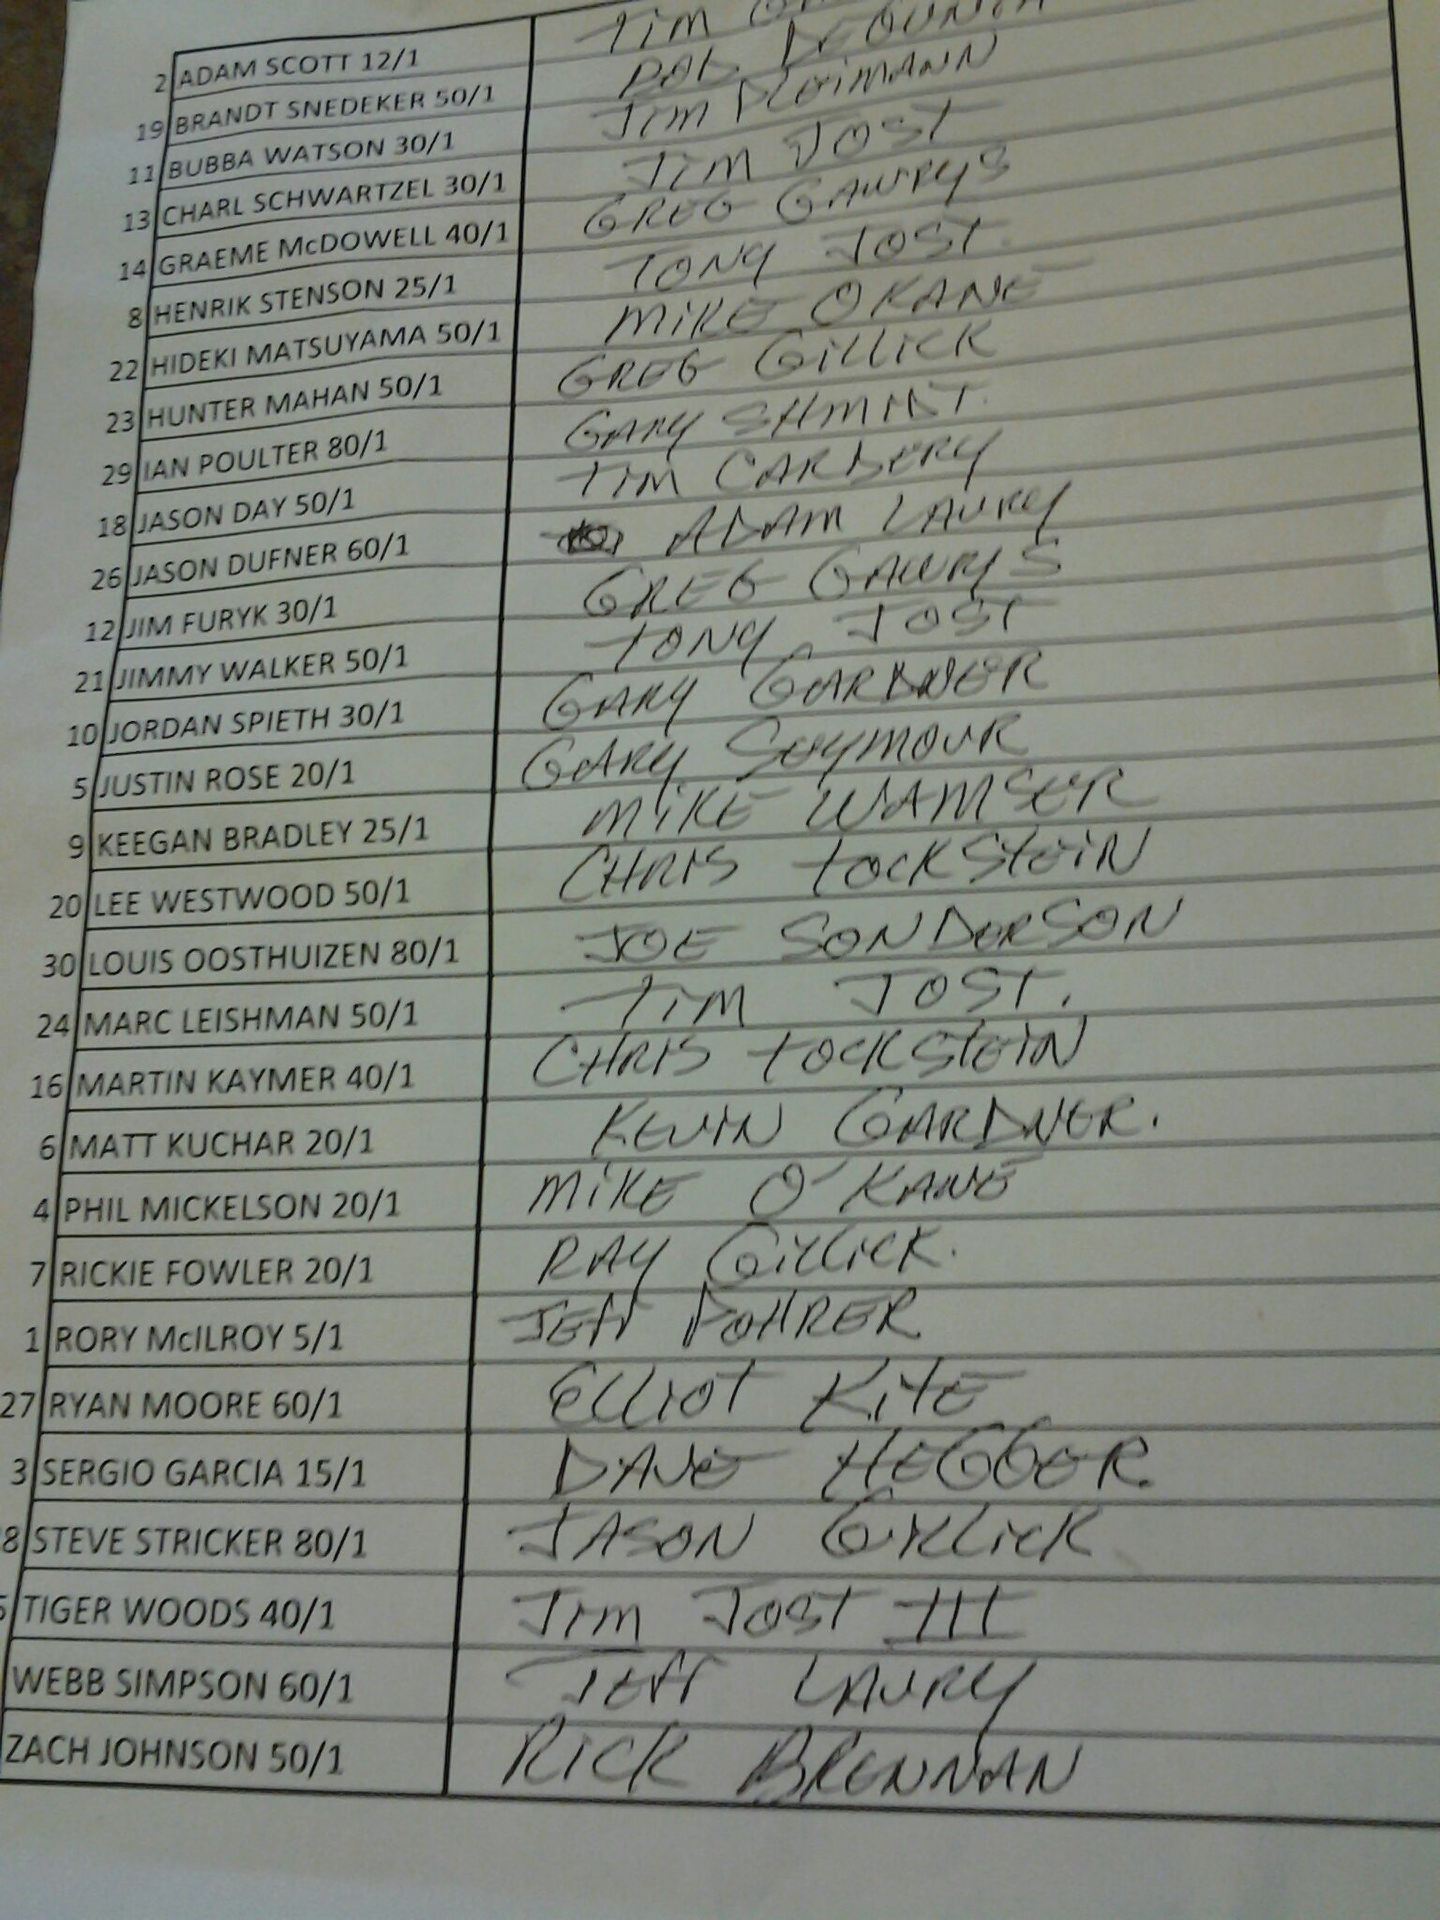 2 ADAM SCOTT 12/1 TIM
19 BRANDT SNEDEKER 50/1
11 BUBBA WATSON 30/1 JIM
13 CHARL SCHWARTZEL 30/1 JIM JOST
14 GRAEME McDOWELL 40/1 GREG GAWRYS
8 HENRIK STENSON 25/1 TONY JOST.
22 HIDEKI MATSUYAMA 50/1 MIKE OKANE
23 HUNTER MAHAN 50/1 GREG GILLICK
29 IAN POULTER 80/1 GARY
18 JASON DAY 50/1 TIM CARBERY
26 JASON DUFNER 60/1 ADAM LAURY
12 JIM FURYK 30/1 GREG GAWRYS
21 JIMMY WALKER 50/1 TONY JOST
10 JORDAN SPIETH 30/1 GARY GARDNER
5 JUSTIN ROSE 20/1 GARY SEYMOUR
9 KEEGAN BRADLEY 25/1 MIKE WAMSER
20 LEE WESTWOOD 50/1 CHRIS TOCKSTEIN
30 LOUIS OOSTHUIZEN 80/1 JOE SONDERSON
24 MARC LEISHMAN 50/1 TIM JOST.
16 MARTIN KAYMER 40/1 CHRIS TOCKSTEIN
6 MATT KUCHAR 20/1 KEVIN GARDNER.
4 PHIL MICKELSON 20/1 MIKE O'KANE
7 RICKIE FOWLER 20/1 RAY GILLICK.
1 RORY McILROY 5/1 JEFF POHRER
27 RYAN MOORE 60/1 ELLIOT KITE
3 SERGIO GARCIA 15/1 DAVE HEGGER.
8 STEVE STRICKER 80/1 JASON GILLICK
5 TIGER WOODS 40/1 JIM JOST III
WEBB SIMPSON 60/1 JEFF LAURY
ZACH JOHNSON 50/1 RICK BRENNAN